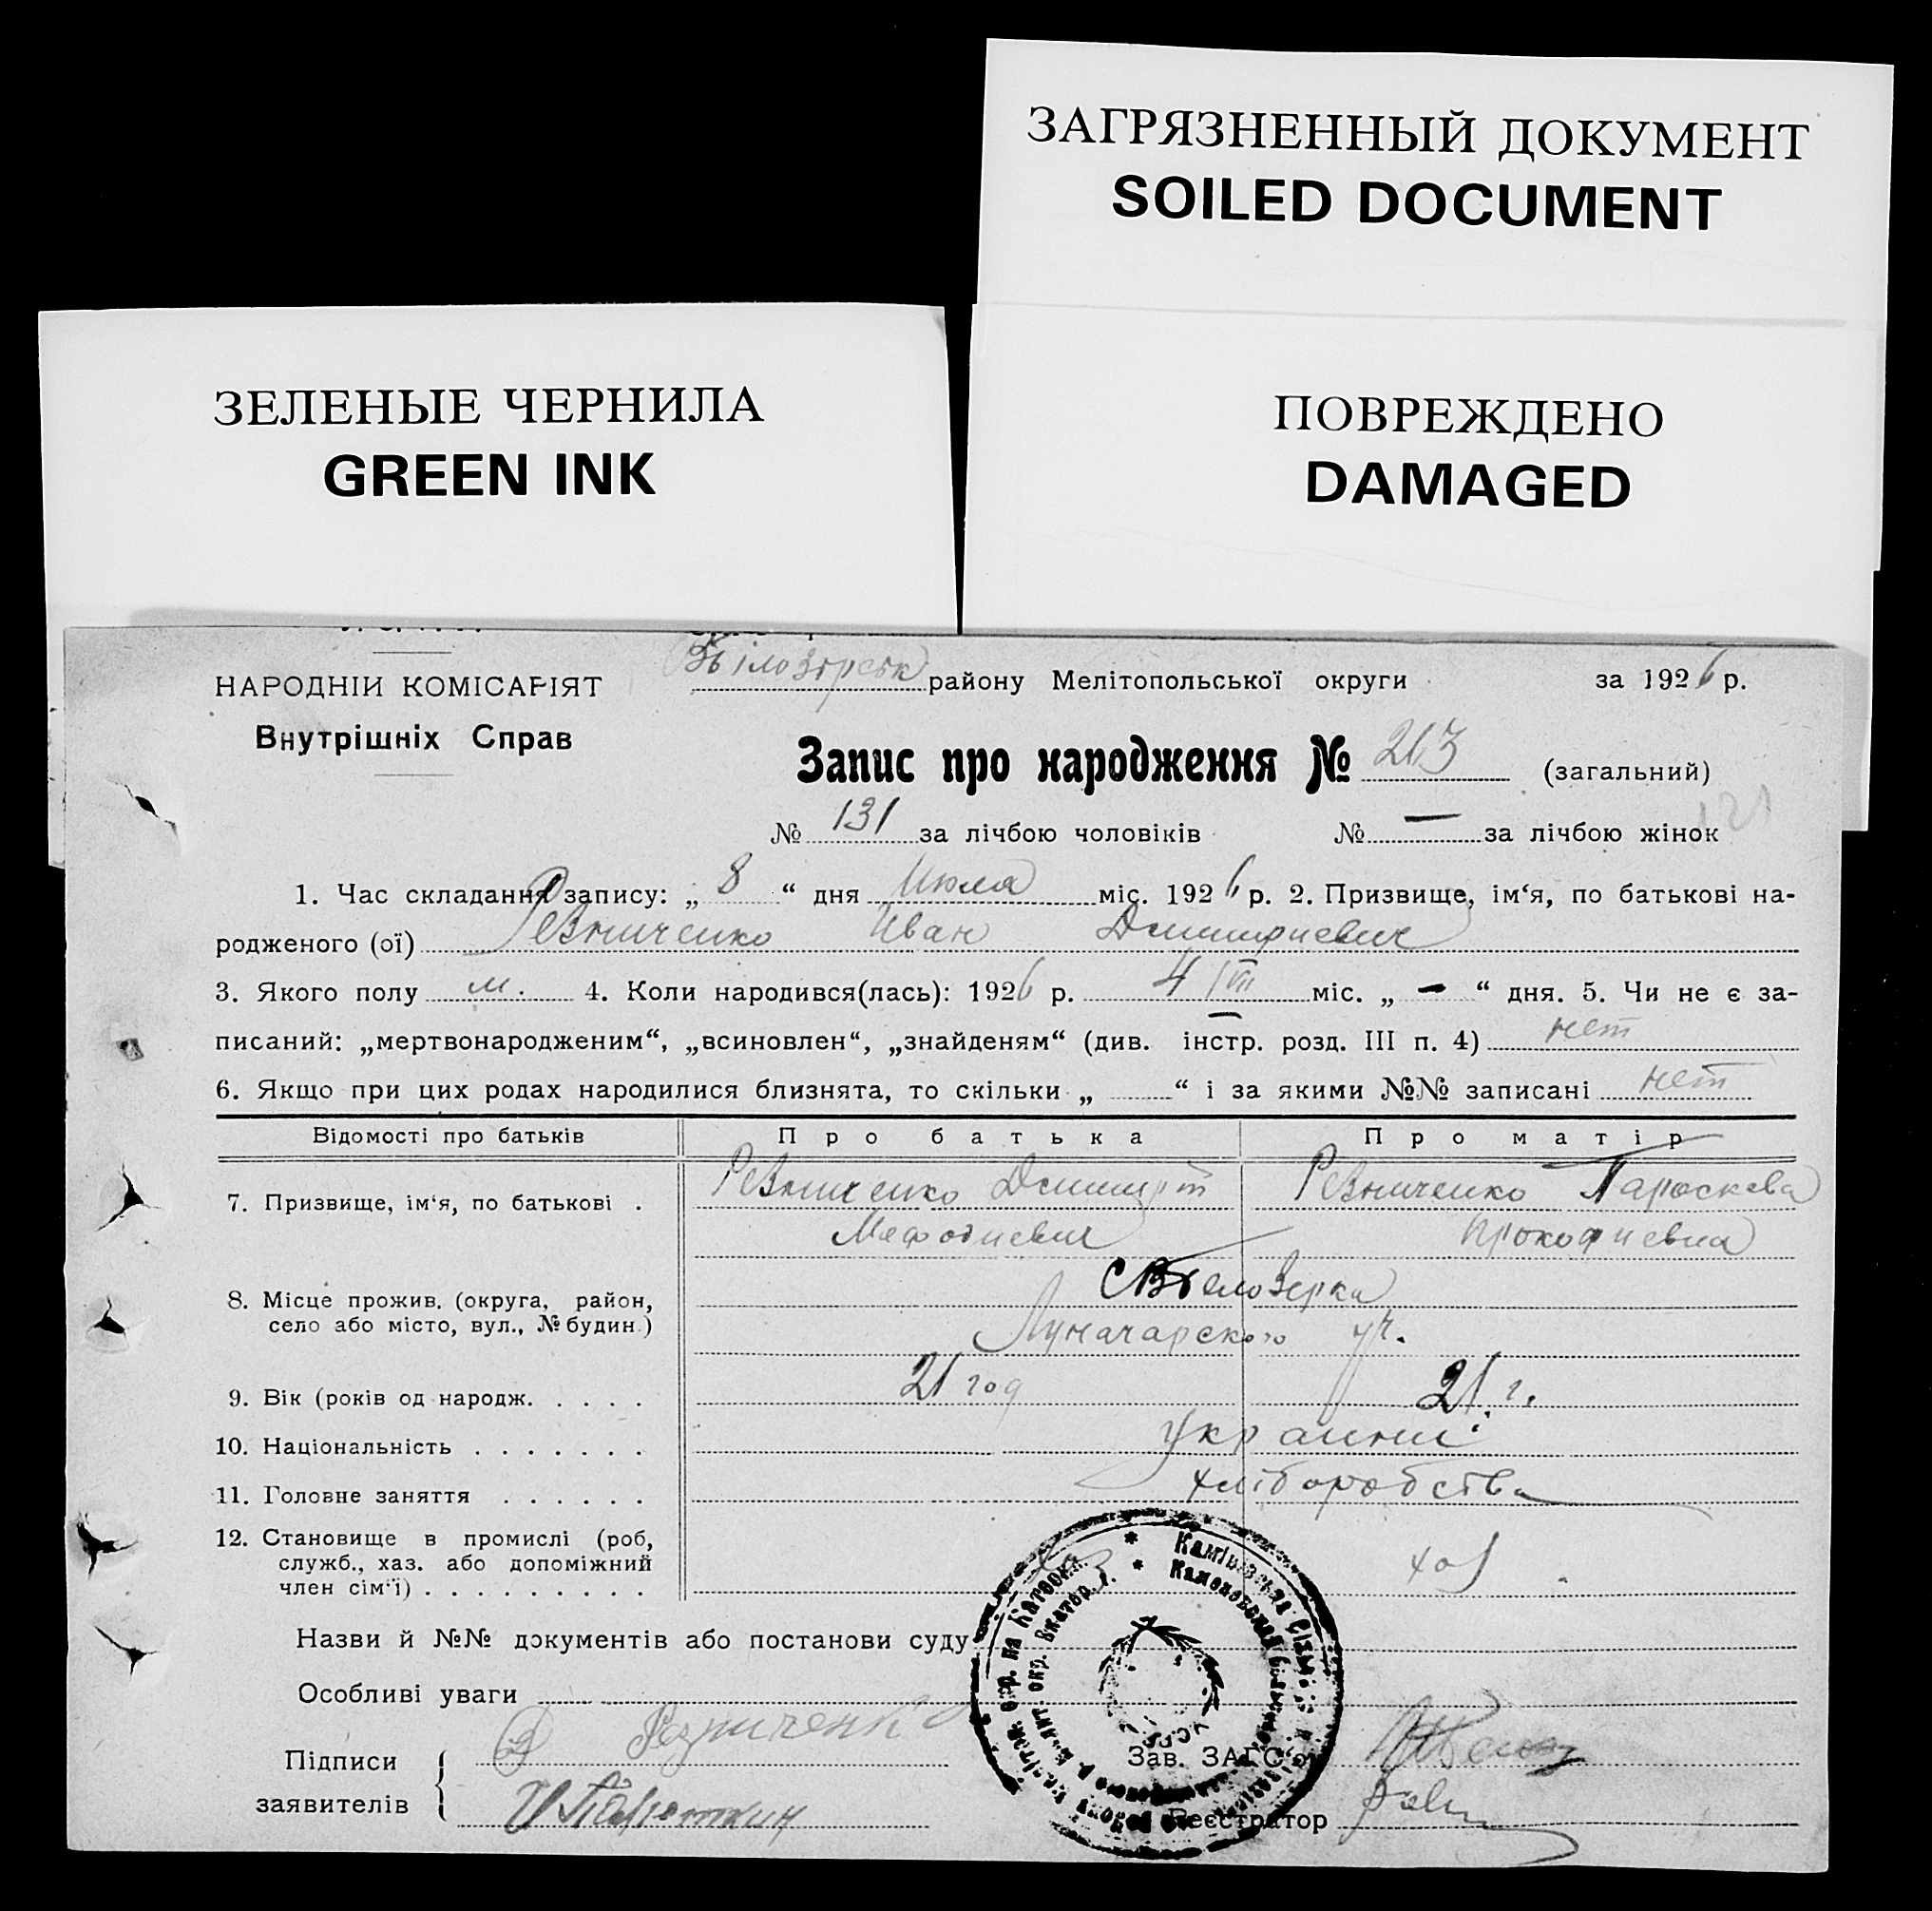 ЗАГРЯЗНЕННЫЙ ДОКУМЕНТ
SOILED DOCUMENT
ЗЕЛЕНЫЕ ЧЕРНИЛА
GREEN INK
ПОВРЕЖДЕНО
DAMAGED
НАРОДНІЙ КОМІСАРІЯТ
Внутрішніх Справ
району Мелітопольської округи за 1926 р.
Запис про народження № 213 (загальний)
№ 131 за лічбою чоловіків № — за лічбою жінок
1. Час складання запису: „ 8 “ дня Июля міс. 1926 р. 2. Призвище, ім‘я, по батькові на-
родженого (ої) Резниченко Иван Дмитриевич
3. Якого полу м. 4. Коли народився(лась): 1926 р. 4/VII міс. „ — “ дня. 5. Чи не є за-
писаний: „мертвонародженим“, „всиновлен“, „знайденям“ (див. інстр. розд. III п. 4) нет
6. Якщо при цих родах народилися близнята, то скільки „ “ і за якими №№ записані нет
Відомості про батьків Про батька Про матір
7. Призвище, ім‘я, по батькові . Резниченко Дмитрий Резниченко Параскева
Мефодиевич Прокофиевна
8. Місце прожив. (округа, район,
село або місто, вул., № будин.) Белозерка
Луначарского ул.
9. Вік (років од народж. . . . . 21 год 21 г.
10. Національність . . . . . . . Украинці
11. Головне заняття . . . . . . хліборобства
12. Становище в промислі (роб,
служб., хаз. або допоміжний
член сім‘ї) . . . . . . . . . хоз
Назви й №№ документів або постанови суду
Особливі уваги
Підписи Резниченко
заявителів
Зав. ЗАГС‘ом
Реєстратор